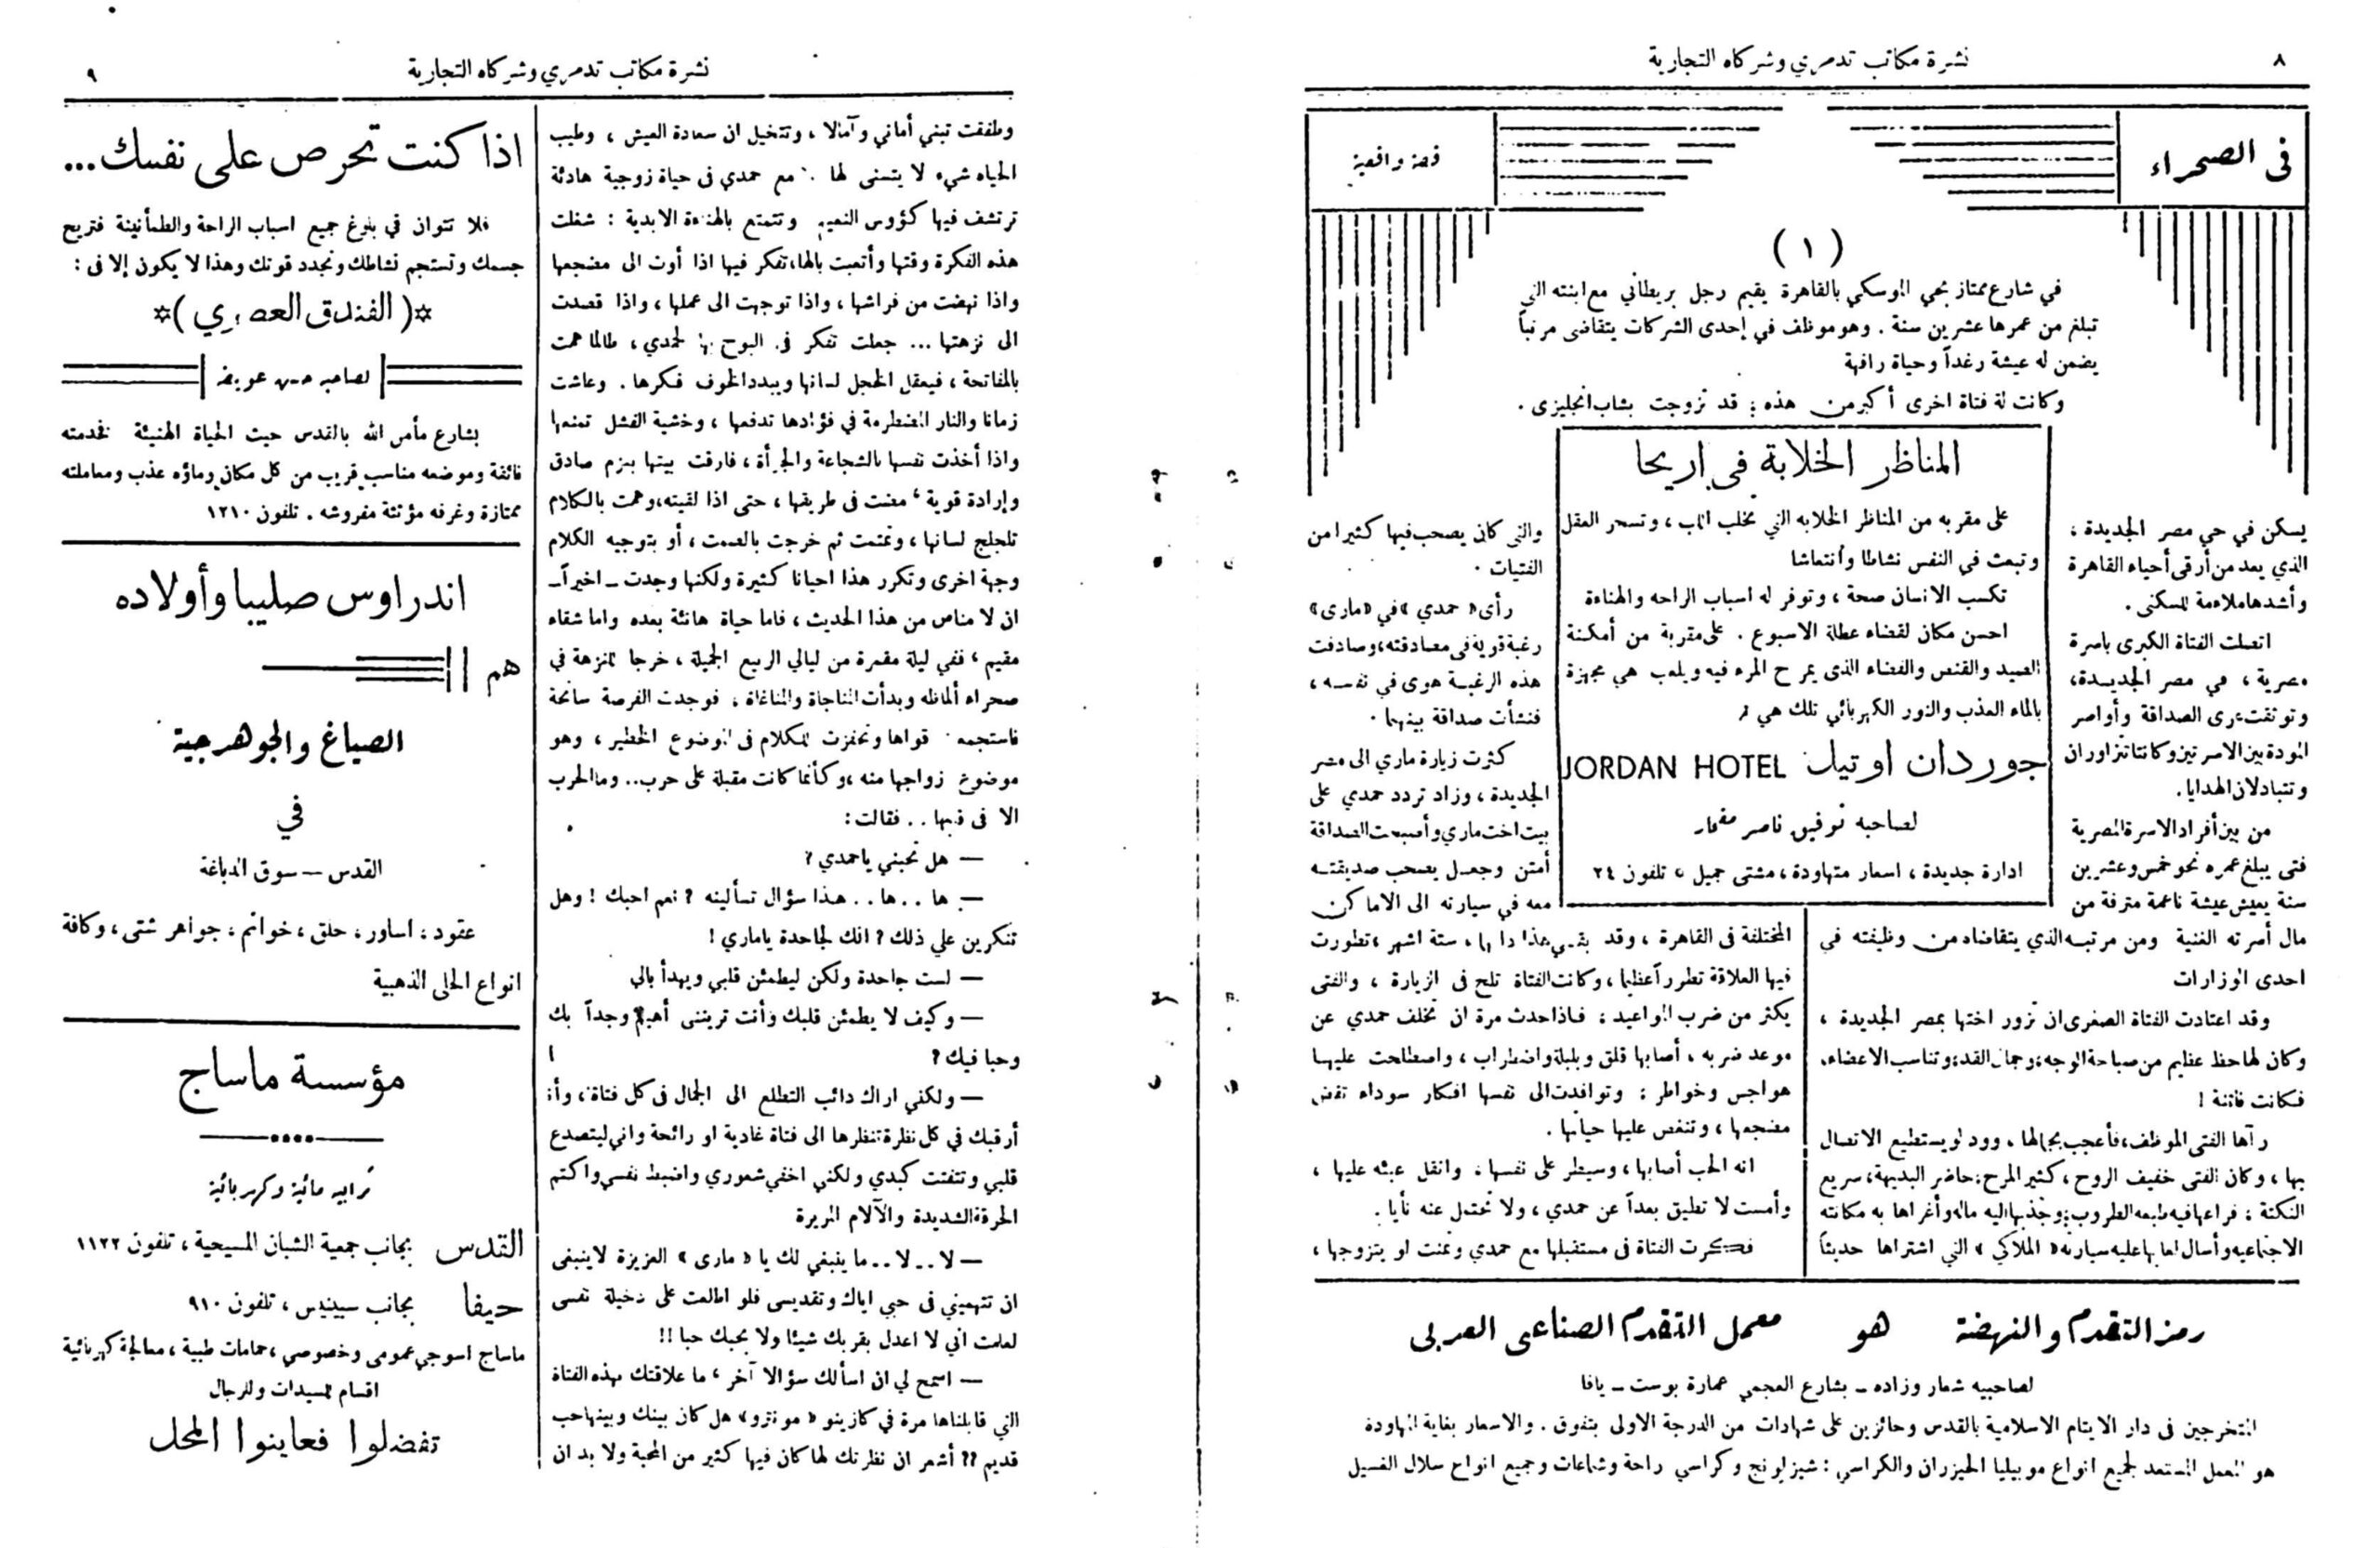 ٨
نشرة مكاتب تدمري وشركاه التجارية
في الصحراء
قصة واقعية
(١)
في شارع ممتاز بحي الموسكي بالقاهرة يقيم رجل بريطاني مع ابنته التي
تبلغ من عمرها عشرين سنة . وهو موظف في إحدى الشركات يتقاضى مرتباً
يضمن له عيشة رغداً وحياة رافهة
وكانت له فتاة اخرى أكبر من هذه ; قد تزوجت بشاب انجليزى .
يسكن في حي مصر الجديدة ،
الذي يعد من أرقى أحياء القاهرة
وأشدها ملاءمة للسكنى .
اتصلت الفتاة الكبرى باسرة
مصرية ، في مصر الجديدة،
وتوثقت عرى الصداقة وأواصر
المودة بين الاسرتين وكانتا تتزاوران
وتتبادلان الهدايا .
من بين أفراد الاسرة المصرية
فتى يبلغ عمره نحو خمس وعشرين
سنة يعيش عيشة ناعمة مترفة من
مال أسرته الغنية ومن مرتبه الذي يتقاضاه من وظيفته في
احدى الوزارات
وقد اعتادت الفتاة الصغرى ان تزور اختها بمصر الجديدة ،
وكان لها حظ عظيم من صباحة الوجه، وجمال القد، وتناسب الاعضاء.
فكانت فاتنة !
رآها الفتى الموظف، فأعجب بجمالها ، وود لو يستطيع الاتصال
بها ، وكان الفتى خفيف الروح ، كثير المرح، حاضر البديهة، سريع
النكتة ، فراعها فيه طبعه الطروب، وجذبها اليه ماله وأغراها به مكانته
الاجتماعيه وأسال لعابها عليه سيارته « الملاكي » التي اشتراها حديثاً
المناظر الخلابة في اريحا
على مقربه من المناظر الخلابه التي تخلب اللب ، وتسحر العقل
وتبعث في النفس نشاطا وأنتعاشا
تكسب الانسان صحة ، وتوفر له اسباب الراحه والهناءة
احسن مكان لقضاء عطلة الاسبوع . على مقربة من أمكنة
الصيد والقنص والفضاء الذى يمرح المرء فيه ويلعب هي مجهزة
بالماء العذب والنور الكهربائي تلك هي :
جوردان اوتيل JORDAN HOTEL
لصاحبه توفيق ناصر
ادارة جديدة ، اسعار متهاودة ، مشتى جميل ، تلفون ٢٤
والتي كان يصحب فيها كثيرا من
الفتيات .
رأى « حمدي » في «مارى»
رغبة قوية في مصادقته، وصادفت
هذه الرغبة هوى في نفسه ،
فنشأت صداقة بينهما .
كثرت زيارة ماري الى مصر
الجديدة ، وزاد تردد حمدي على
بيت اخت ماري وأصبحت الصداقة
أمتن وجعل يصحب صديقته
معه في سيارته الى الاماكن
المختلفة فى القاهرة ، وقد بقي هذا دابها ، ستة اشهر ، تطورت
فيها العلاقة تطوراً عظيما ، وكانت الفتاة تلح فى الزيارة ، والفتى
يكثر من ضرب المواعيد ، فاذا حدث مرة ان تخلف حمدي عن
موعد ضربه ، أصابها قلق وبلبلة واضطراب ، واصطلحت عليها
هواجس وخواطر ; وتوافدت الى نفسها افكار سوداء تقض
مضجعها ، وتنغص عليها حياتها .
انه الحب أصابها ، وسيطر على نفسها . واثقل عبئه عليها ،
وأمست لا تطيق بعداً عن حمدي ، ولا تحتمل عنه نأيا .
فكرت الفتاة فى مستقبلها مع حمدي وتمنت لو يتزوجها ،
رمز التقدم والنهضة هو معمل التقدم الصناعى العربى
لصاحبيه شعار وزاده ــ بشارع العجمي عمارة بوست ــ يافا
المتخرجين فى دار الايتام الاسلامية بالقدس وحائزين على شهادات من الدرجة الاولى بتفوق . والاسعار بغاية المهاودة
هو المعمل المستعد لجميع انواع موبيليا الخيزران والكراسي : شيزلونج وكراسي راحة وشماعات وجميع انواع سلال الغسيل
٩
نشرة مكاتب تدمري وشركاه التجارية
وطفقت تبني أماني وآمالا ، وتتخيل ان سعادة العيش ، وطيب
الحياه شيء لا يتسنى لها مع حمدي فى حياة زوجية هادئة
ترتشف فيها كؤوس النعيم وتتمتع بالهناءة الابدية : شغلت
هذه الفكرة وقتها وأتعبت بالها، تفكر فيها اذا أوت الى مضجعها
واذا نهضت من فراشها ، واذا توجهت الى عملها ، واذا قصدت
الى نزهتها ... جعلت تفكر في البوح بها لحمدي ، طالما همت
بالمفاتحة ، فيعقل الخجل لسانها ويبدد الخوف فكرها . وعاشت
زمانا والنار المضطرمة في فؤادها تدفعها ، وخشية الفشل تمنعها
واذا أخذت نفسها بالشجاعة والجرأة ، فارقت بيتها بعزم صادق
وإرادة قوية ، مضت فى طريقها ، حتى اذا لقيته، وهمت بالكلام
تلجلج لسانها ، وتمتمت ثم خرجت بالصمت ، أو بتوجيه الكلام
وجهة اخرى وتكرر هذا احيانا كثيرة ولكنها وجدت ــ اخيراً ــ
ان لا مناص من هذا الحديث ، فاما حياة هانئة بعده واما شقاء
مقيم ، ففي ليلة مقمرة من ليالي الربيع الجميلة ، خرجا للنزهة في
صحراء ألماظه وبدأت المناجاة والمناغاة ، فوجدت الفرصة سانحة
فاستجمعت قواها وتحفزت للكلام فى الموضوع الخطير ، وهو
موضوع زواجها منه ، وكأنما كانت مقبلة على حرب .. وما الحرب
الا فى قلبها .. فقالت :
— هل تحبني ياحمدي ؟
— ها .. ها .. هذا سؤال تسألينه ؟ نعم احبك ! وهل
تنكرين علي ذلك ؟ انك لجاحدة ياماري !
— لست جاحدة ولكن ليطمئن قلبي ويهدأ بالي
— وكيف لا يطمئن قلبك وأنت تريننى أهيم وجداً بك
وحبا فيك ؟
— ولكني اراك دائب التطلع الى الجمال فى كل فتاة ، وأنا
أرقبك في كل نظرة تنظرها الى فتاة غادية او رائحة واني ليتصدع
قلبي وتتفتت كبدي ولكني اخفي شعوري واضبط نفسي واكتم
الحرقة الشديدة والآلام المريرة
— لا .. لا .. ما ينبغي لك يا « مارى » العزيزة لا ينبغى
ان تتهميني فى حبي اياك وتقديسى فلو اطلعت على دخيلة نفسى
لعلمت اني لا اعدل بقربك شيئا ولا بحبك حبا !!
— اسمح لي ان اسألك سؤالا آخر ، ما علاقتك بهذه الفتاة
التي قابلناها مرة في كازينو « مونترو» هل كان بينك وبينها حب
قديم ؟؟ أشعر ان نظرتك لها كان فيها كثير من المحبة ولا بد ان
اذا كنت تحرص على نفسك ...
فلا تتوان في بلوغ جميع اسباب الراحة والطمأنينة فتريح
جسمك وتستجم نشاطك وتجدد قوتك وهذا لا يكون إلا فى :
(الفندق العصري)
لصاحبه حسن عويضه
بشارع مأمن الله بالقدس حيث الحياة الهنيئة فخدمته
فائقة وموضعه مناسب قريب من كل مكان وماؤه عذب ومعاملته
ممتازة وغرفه مؤثثة مفروشه . تلفون ١٢١٠
اندراوس صليبا وأولاده
هم
الصياغ والجوهرجية
في
القدس — سوق الدباغة
عقود ، اساور ، حلق ، خواتم ، جواهر شتى ، وكافة
انواع الحلى الذهبية
مؤسسة ماساج
ترابيه مائية وكهربائية
القدس بجانب جمعية الشبان المسيحية ، تلفون ١١٢٢
حيفا بجانب سبيندس ، تلفون ٩١٠
ماساج اسوجي عمومى وخصوصي ، حمامات طبية ، معالجة كهربائية
اقسام للسيدات وللرجال
تفضلوا فعاينوا المحل